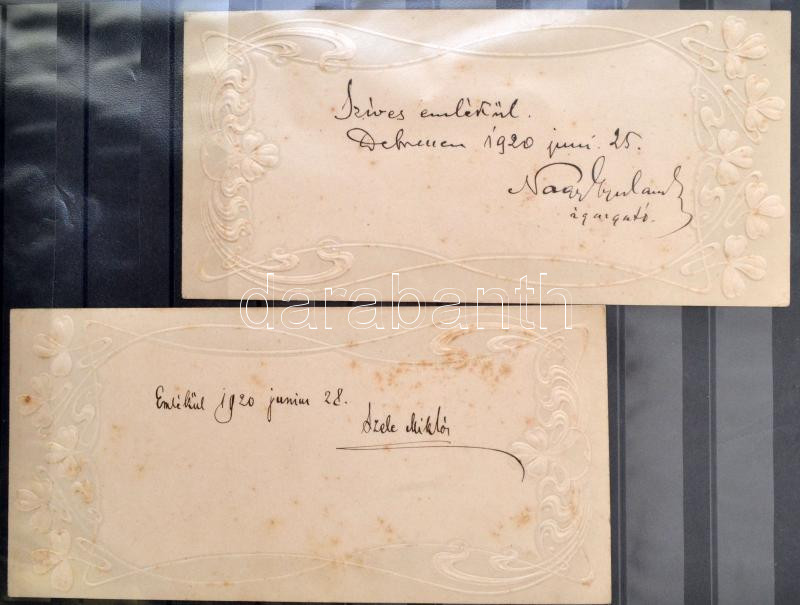 Szíves emlékül.
Debrecen 1920 juni. 25.
Nagy Gyula
igazgató.
darabanth
Emlékül 1920 junius 28.
Szele Miklós